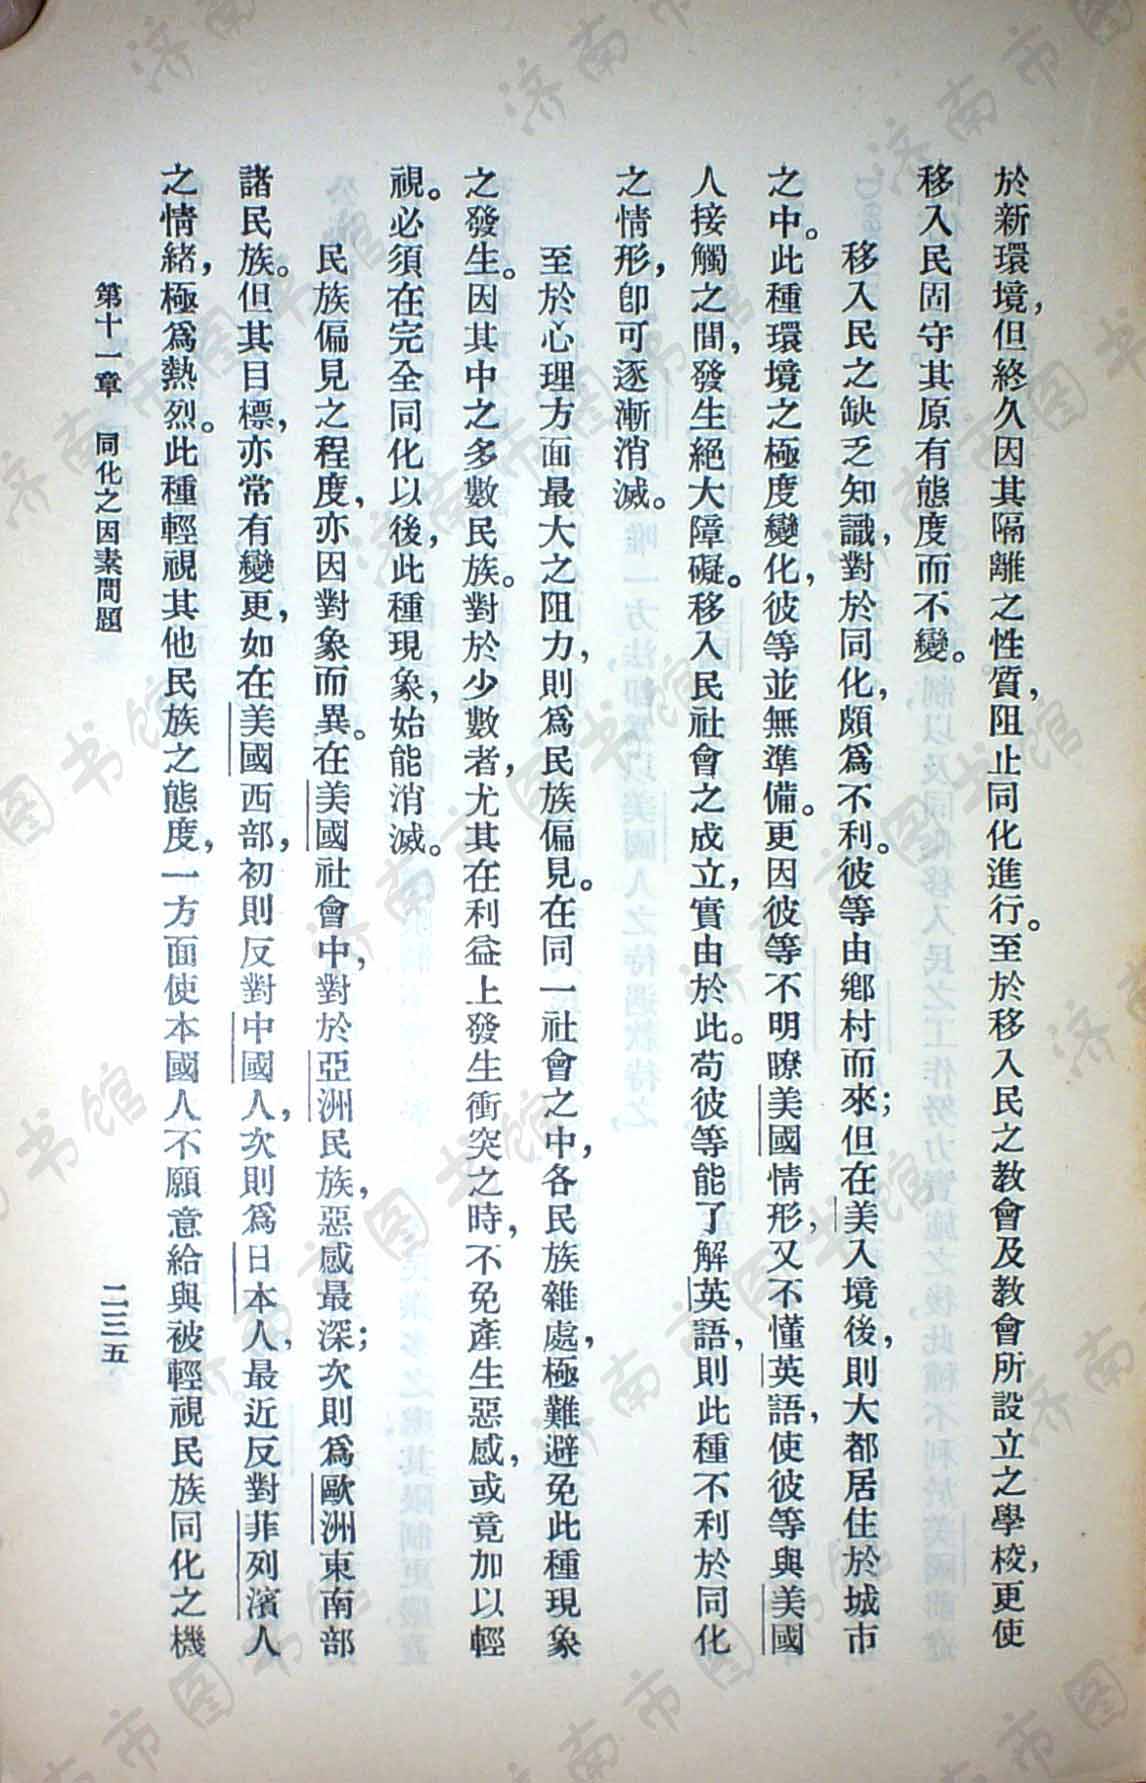 於新環境，但終久因其隔離之性質，阻止同化進行。至於移入民之教會及教會所設立之學校，更使
移入民固守其原有態度而不變。
移入民之缺乏知識，對於同化，頗爲不利。彼等由鄉村而來；但在美入境後，則大都居住於城市
之中。此種環境之極度變化，彼等並無準備。更因彼等不明瞭美國情形，又不懂英語，使彼等與美國
人接觸之間，發生絕大障礙。移入民社會之成立，實由於此。苟彼等能了解英語，則此種不利於同化
之情形，卽可逐漸消滅。
至於心理方面最大之阻力，則爲民族偏見。在同一社會之中，各民族雜處，極難避免此種現象
之發生。因其中之多數民族。對於少數者，尤其在利益上發生衝突之時，不免產生惡感，或竟加以輕
視。必須在完全同化以後，此種現象，始能消滅。
民族偏見之程度，亦因對象而異。在美國社會中，對於亞洲民族，惡感最深；次則爲歐洲東南部
諸民族。但其目標，亦常有變更，如在美國西部，初則反對中國人，次則爲日本人，最近反對菲列濱人
之情緒，極爲熱烈。此種輕視其他民族之態度，一方面使本國人不願意給與被輕視民族同化之機
第十一章 同化之因素問題
二三五
济南市图书馆